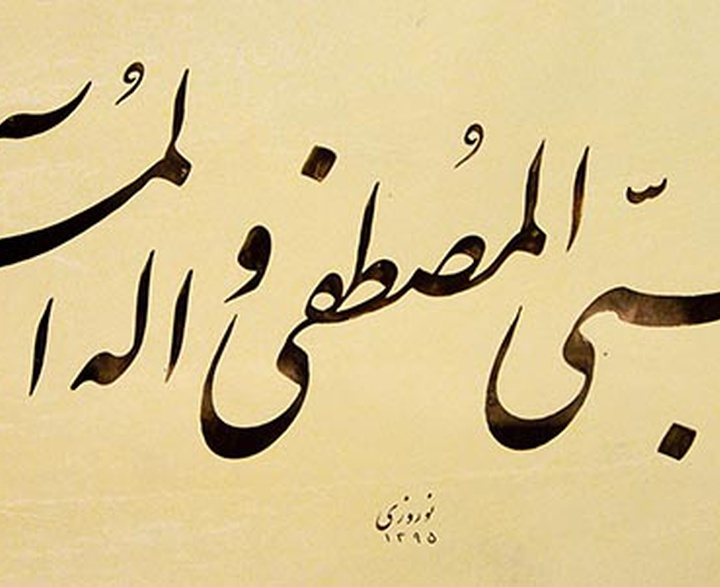 بّی المُصطفی و اله المُ
نوروزی
۱۳۹۵